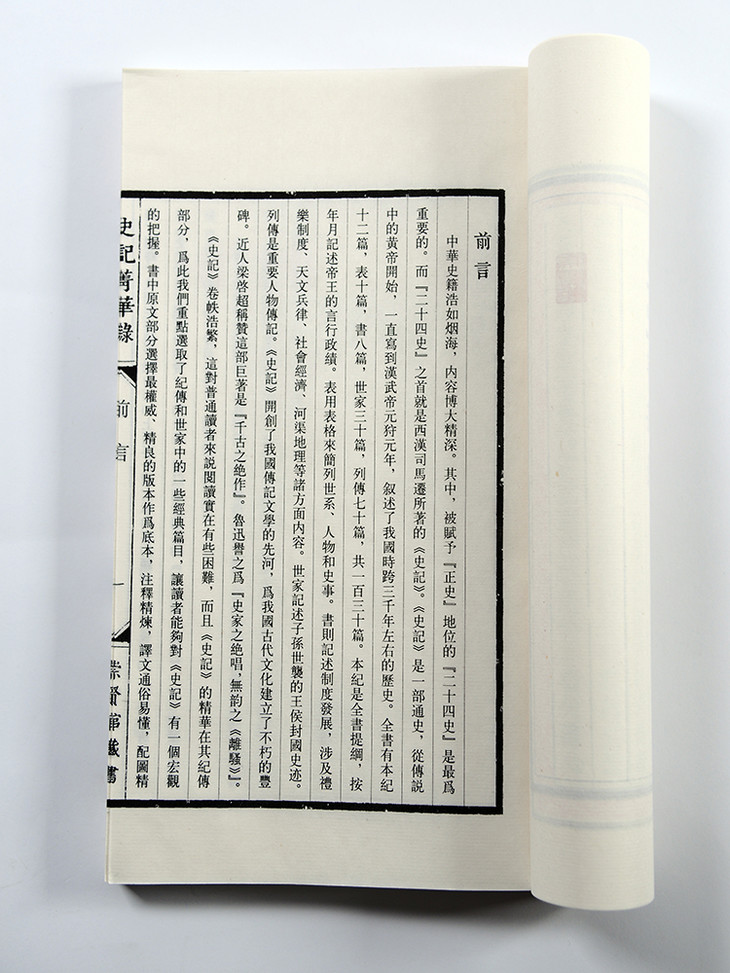 前言
中華史籍浩如烟海，內容博大精深。其中，被賦予『正史』地位的『二十四史』是最爲
重要的。而『二十四史』之首就是西漢司馬遷所著的《史記》。《史記》是一部通史，從傳說
中的黄帝開始，一直寫到漢武帝元狩元年，叙述了我國時跨三千年左右的歷史。全書有本紀
十二篇，表十篇，書八篇，世家三十篇，列傳七十篇，共一百三十篇。本紀是全書提綱，按
年月記述帝王的言行政績。表用表格來簡列世系、人物和史事。書則記述制度發展，涉及禮
樂制度、天文兵律、社會經濟、河渠地理等諸方面内容。世家記述子孫世襲的王侯封國史迹。
列傳是重要人物傳記。《史記》開創了我國傳記文學的先河，爲我國古代文化建立了不朽的豐
碑。近人梁啓超稱贊這部巨著是『千古之絶作』。魯迅譽之爲『史家之絶唱，無韵之《離騷》』。
《史記》卷帙浩繁，這對普通讀者來説閱讀實在有些困難，而且《史記》的精華在其紀傳
部分，爲此我們重點選取了紀傳和世家中的一些經典篇目，讓讀者能夠對《史記》有一個宏觀
的把握。書中原文部分選擇最權威、精良的版本作爲底本，注釋精煉，譯文通俗易懂，配圖精
史記菁華錄
前言
一
崇賢館藏書